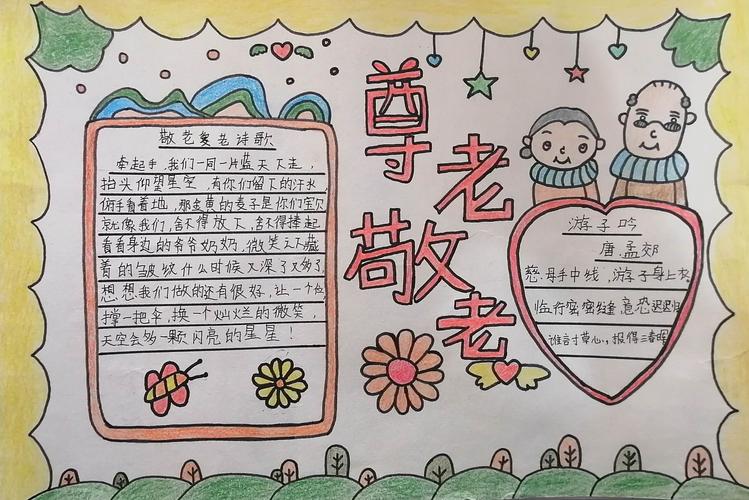 敬老爱老诗歌
牵起手,我们一同一片蓝天下走,
抬头仰望星空,有你们留下的汗水,
俯手看着地,那金黄的麦子是你们宝贝
就像我们,舍不得放下,舍不得捧起
看看身边的爷爷奶奶,微笑之下藏
着的皱纹什么时候又深了又多了
想想我们做的还有很好,让一个位
撑一把伞,换一个灿烂的微笑,
天空会多一颗闪亮的星星!
尊老敬老
游子吟
唐孟郊
慈母手中线,游子身上衣
临行密密缝意恐迟迟归
谁言寸草心,报得三春晖